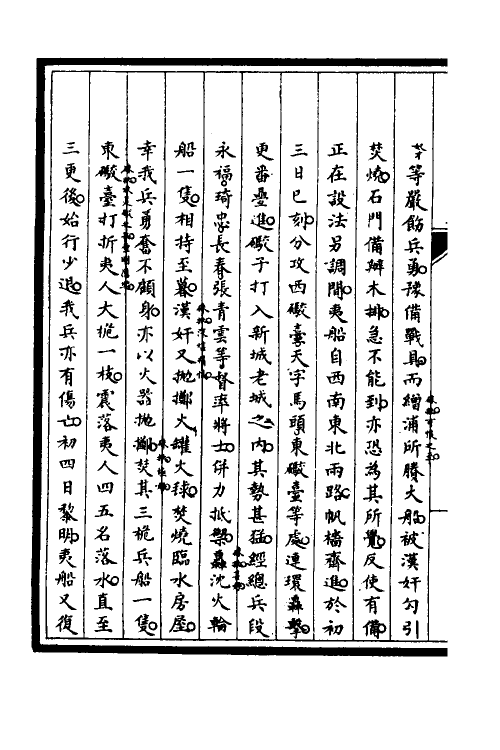 等嚴飭兵勇豫備戰具而繒浦所賸大船被漢奸勾引
焚燒石門備辦木排急不能到亦恐為其所覺反使有備
正在設法另調間夷船自西南東北兩路帆檣齊進於初
三日巳刻分攻西礮臺天字馬頭東礮臺等處連環轟擊
更番疊進礮子打入新城老城之內其勢甚猛經總兵段
永福琦忠長春張青雲等督率將士併力抵禦轟沈火輪
船一隻相持至暮漢奸又拋擲火罐火球焚燒臨水房屋
幸我兵勇奮不顧身亦以火器拋擲焚其三桅兵船一隻
東礮臺打折夷人大桅一枝震落夷人四五名落水直至
三更後始行少退我兵亦有傷亡初四日黎明夷船又復